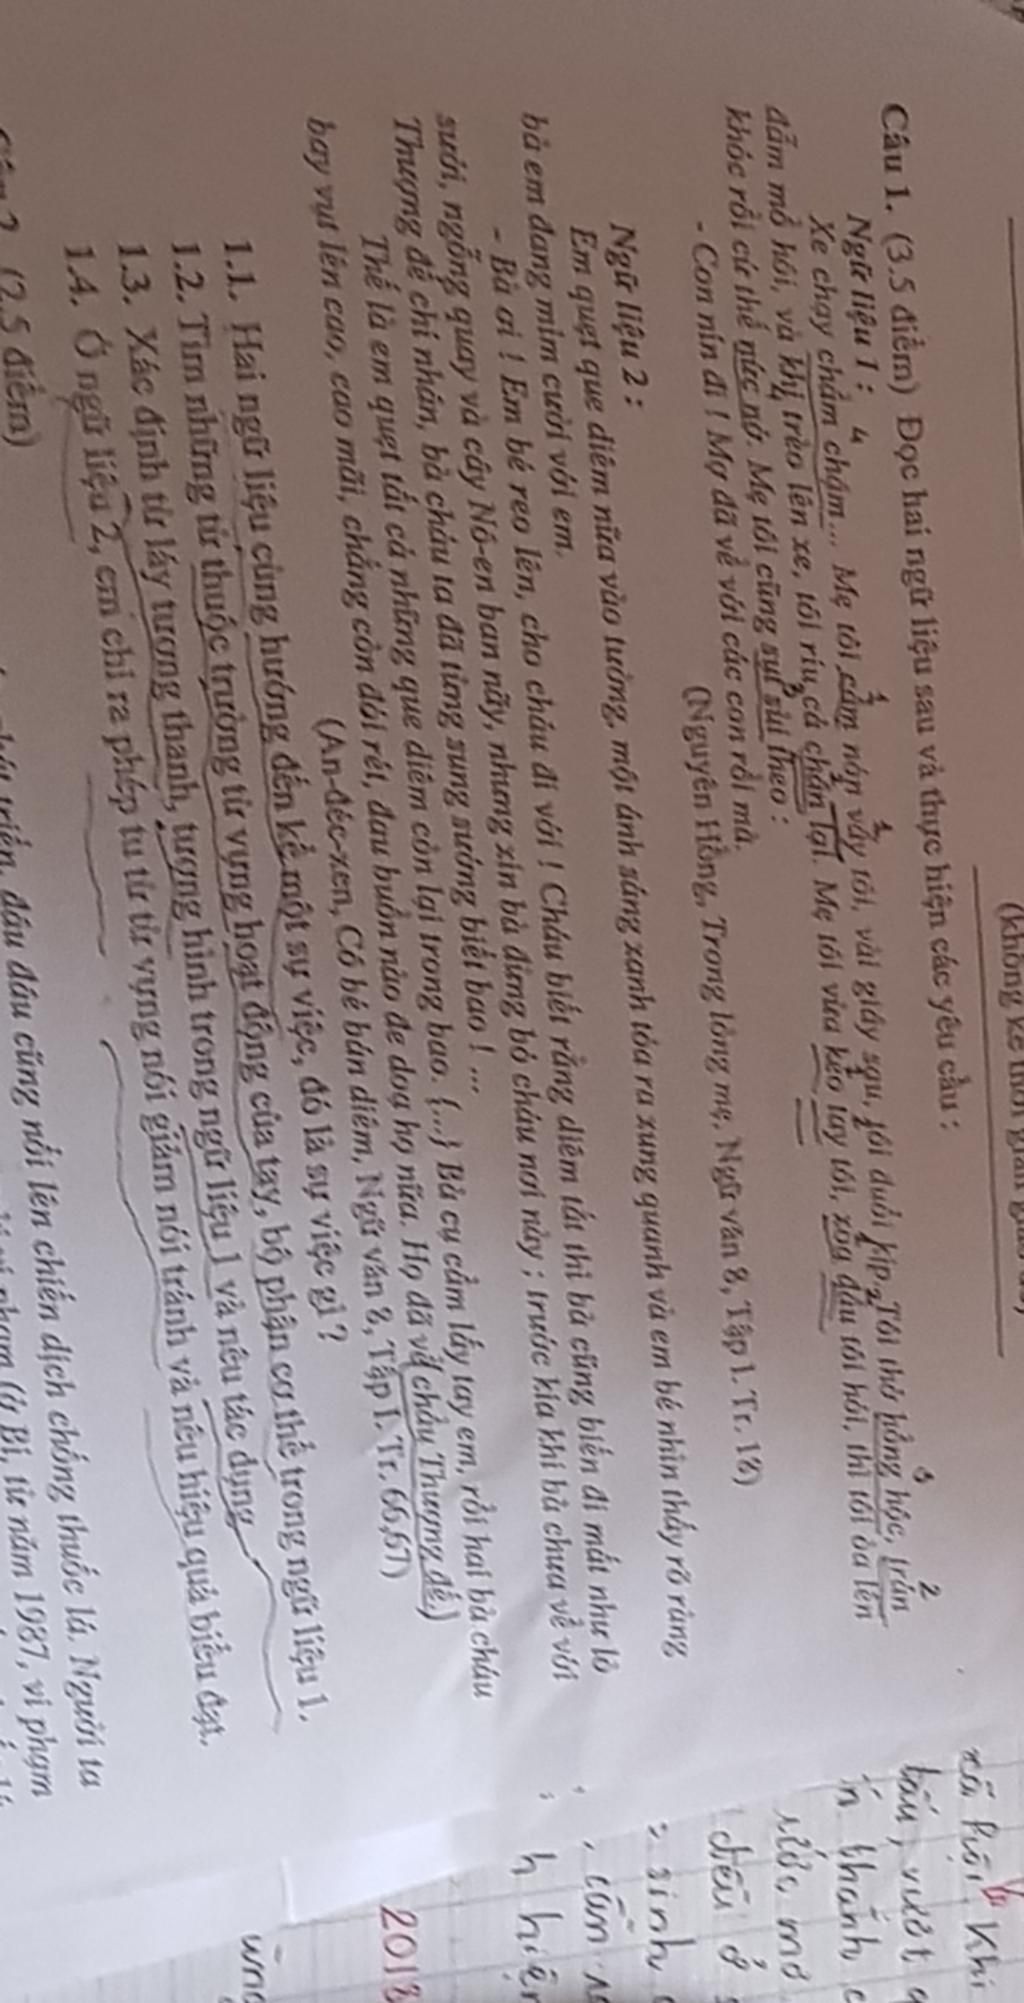 (không kể thời gian
Câu 1. (3.5 điểm) Đọc hai ngữ liệu sau và thực hiện các yêu cầu :
Ngữ liệu 1 :
Xe chạy chầm chậm... Mẹ tôi cầm nón vẫy tôi, vài giây sau, tôi đuổi kịp. Tôi thở hồng hộc, trán
đẫm mồ hôi, và khi trèo lên xe, tôi ríu cả chân lại. Mẹ tôi vừa kéo tay tôi, xoa đầu tôi hỏi, thì tôi òa lên
khóc rồi cứ thế nức nở. Mẹ tôi cũng sụt sùi theo :
- Con nín đi ! Mợ đã về với các con rồi mà.
(Nguyên Hồng, Trong lòng mẹ, Ngữ văn 8, Tập 1. Tr. 18)
Ngữ liệu 2 :
Em quẹt que diêm nữa vào tường, một ánh sáng xanh tỏa ra xung quanh và em bé nhìn thấy rõ ràng
bà em đang mỉm cười với em.
- Bà ơi ! Em bé reo lên, cho cháu đi với ! Cháu biết rằng diêm tắt thì bà cũng biến đi mất như lò
sưởi, ngỗng quay và cây Nô-en ban nãy, nhưng xin bà đừng bỏ cháu nơi này ; trước kia khi bà chưa về với
Thượng đế chí nhân, bà cháu ta đã từng sung sướng biết bao ! ...
Thế là em quẹt tất cả những que diêm còn lại trong bao. {...} Bà cụ cầm lấy tay em, rồi hai bà cháu
bay vụt lên cao, cao mãi, chẳng còn đói rét, đau buồn nào đe dọa họ nữa. Họ đã về chầu Thượng đế.)
(An-đéc-xen, Cô bé bán diêm, Ngữ văn 8, Tập 1. Tr. 66,67)
1.1. Hai ngữ liệu cùng hướng đến kể một sự việc, đó là sự việc gì ?
1.2. Tìm những từ thuộc trường từ vựng hoạt động của tay, bộ phận cơ thể trong ngữ liệu 1.
1.3. Xác định từ láy tượng thanh, tượng hình trong ngữ liệu 1 và nêu tác dụng
1.4. Ở ngữ liệu 2, em chỉ ra phép tu từ từ vựng nói giảm nói tránh và nêu hiệu quả biểu đạt.
(2,5 điểm)
triển, đâu đâu cũng nổi lên chiến dịch chống thuốc lá. Người ta
ở Bỉ, từ năm 1987, vi phạm
Khi
vượt
thành
mở
đều ở
sinh
h hiện
2018